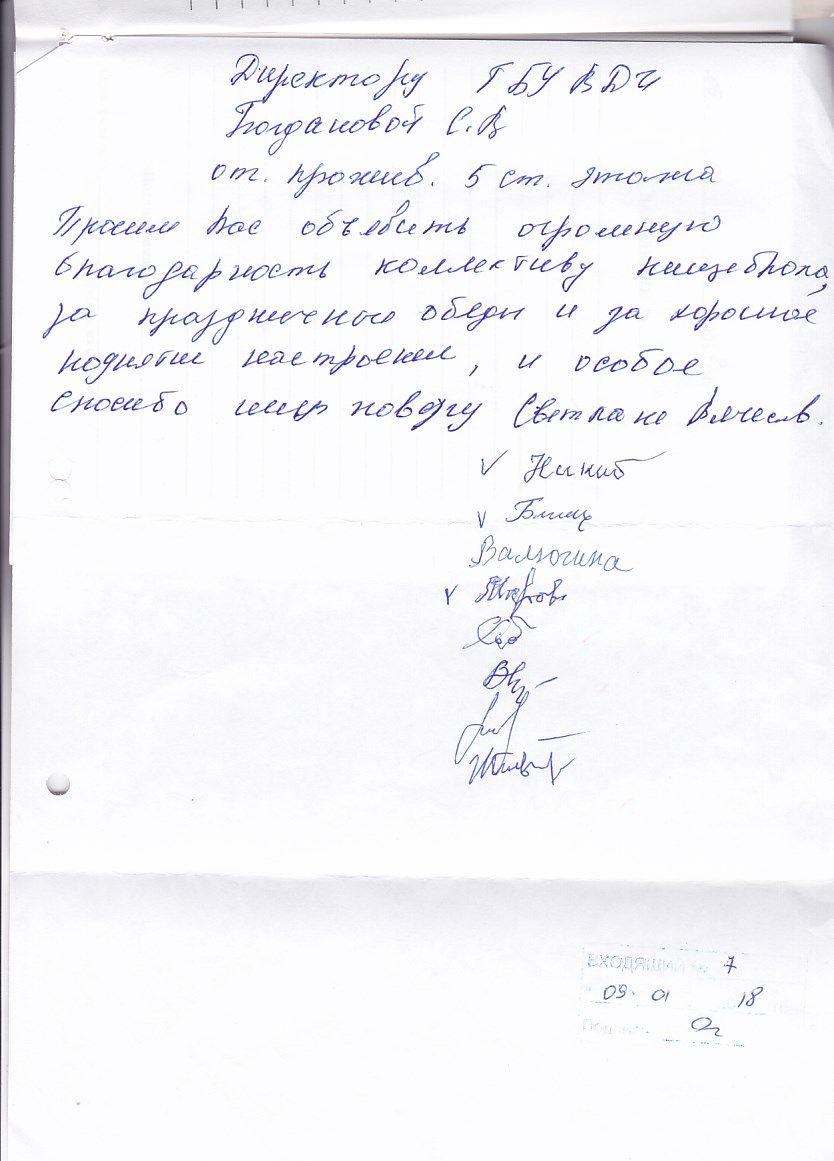 Директору ГБУ ВДИ
Богдановой С.В
от. прожив. 5 ст. этажа
Просим Вас объевить огромную
благодарность коллективу пищеблока,
за праздничные обеды и за хорошое
поднятие настроения, и особое
спосибо шеф повару Светлане Вячеслав.
Валюгина
ВХОДЯЩИЙ № 7
"09" 01 18
Подпись